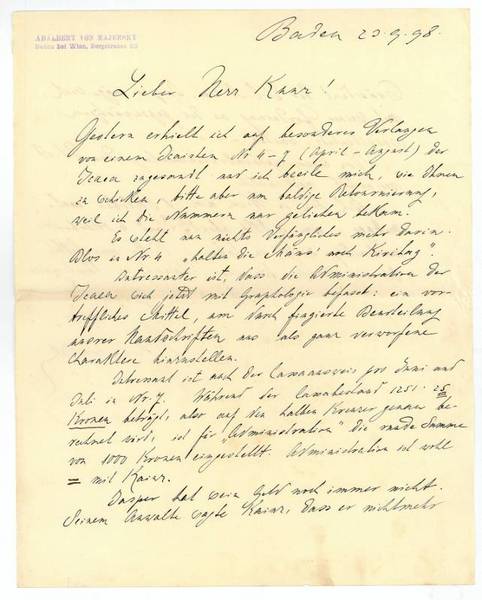 ADALBERT VON MAJERSKY
Baden bei Wien, Bergstrasse 23
Baden 23.9.98.
Lieber Herr Kunz!
Gestern erhielt ich auf besonderes Verlangen
von einem Nr 4-7 (April-August) der
zugesandt und ich beeile mich, sie Ihnen
zu schicken, bitte aber um baldige Retournierung,
weil ich die Nummern nur geliehen bekam.
Es steht nun nichts Verfängliches mehr darin.
Blos in Nr 4 "halten die noch Kirchtag".
Interessanter ist, dass die Administration der
sich jetzt mit Graphologie befasst: ein vor-
treffliches Mittel, um durch fingierte Beurteilung
unserer Handschriften uns als ganz verworfene
Charaktere hinzustellen.
Interessant ist auch der Cassaausweis pro Juni und
Juli in Nr. 7. Während der Cassabestand 1251.25
Kronen beträgt, also auf den halben Kreuzer genau be-
rechnet wird, ist für "Administration" die runde Summe
von 1000 Kronen eingestellt. Administration ist wohl
= mit Kainz.
hat sein Geld noch immer nicht.
Seinem Anwalte sagte Kainz, dass er nichtmehr